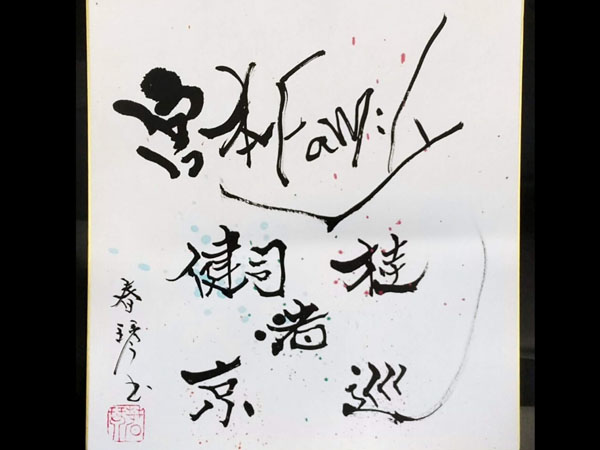 本Family
健司 桂
渚
京 巡
春